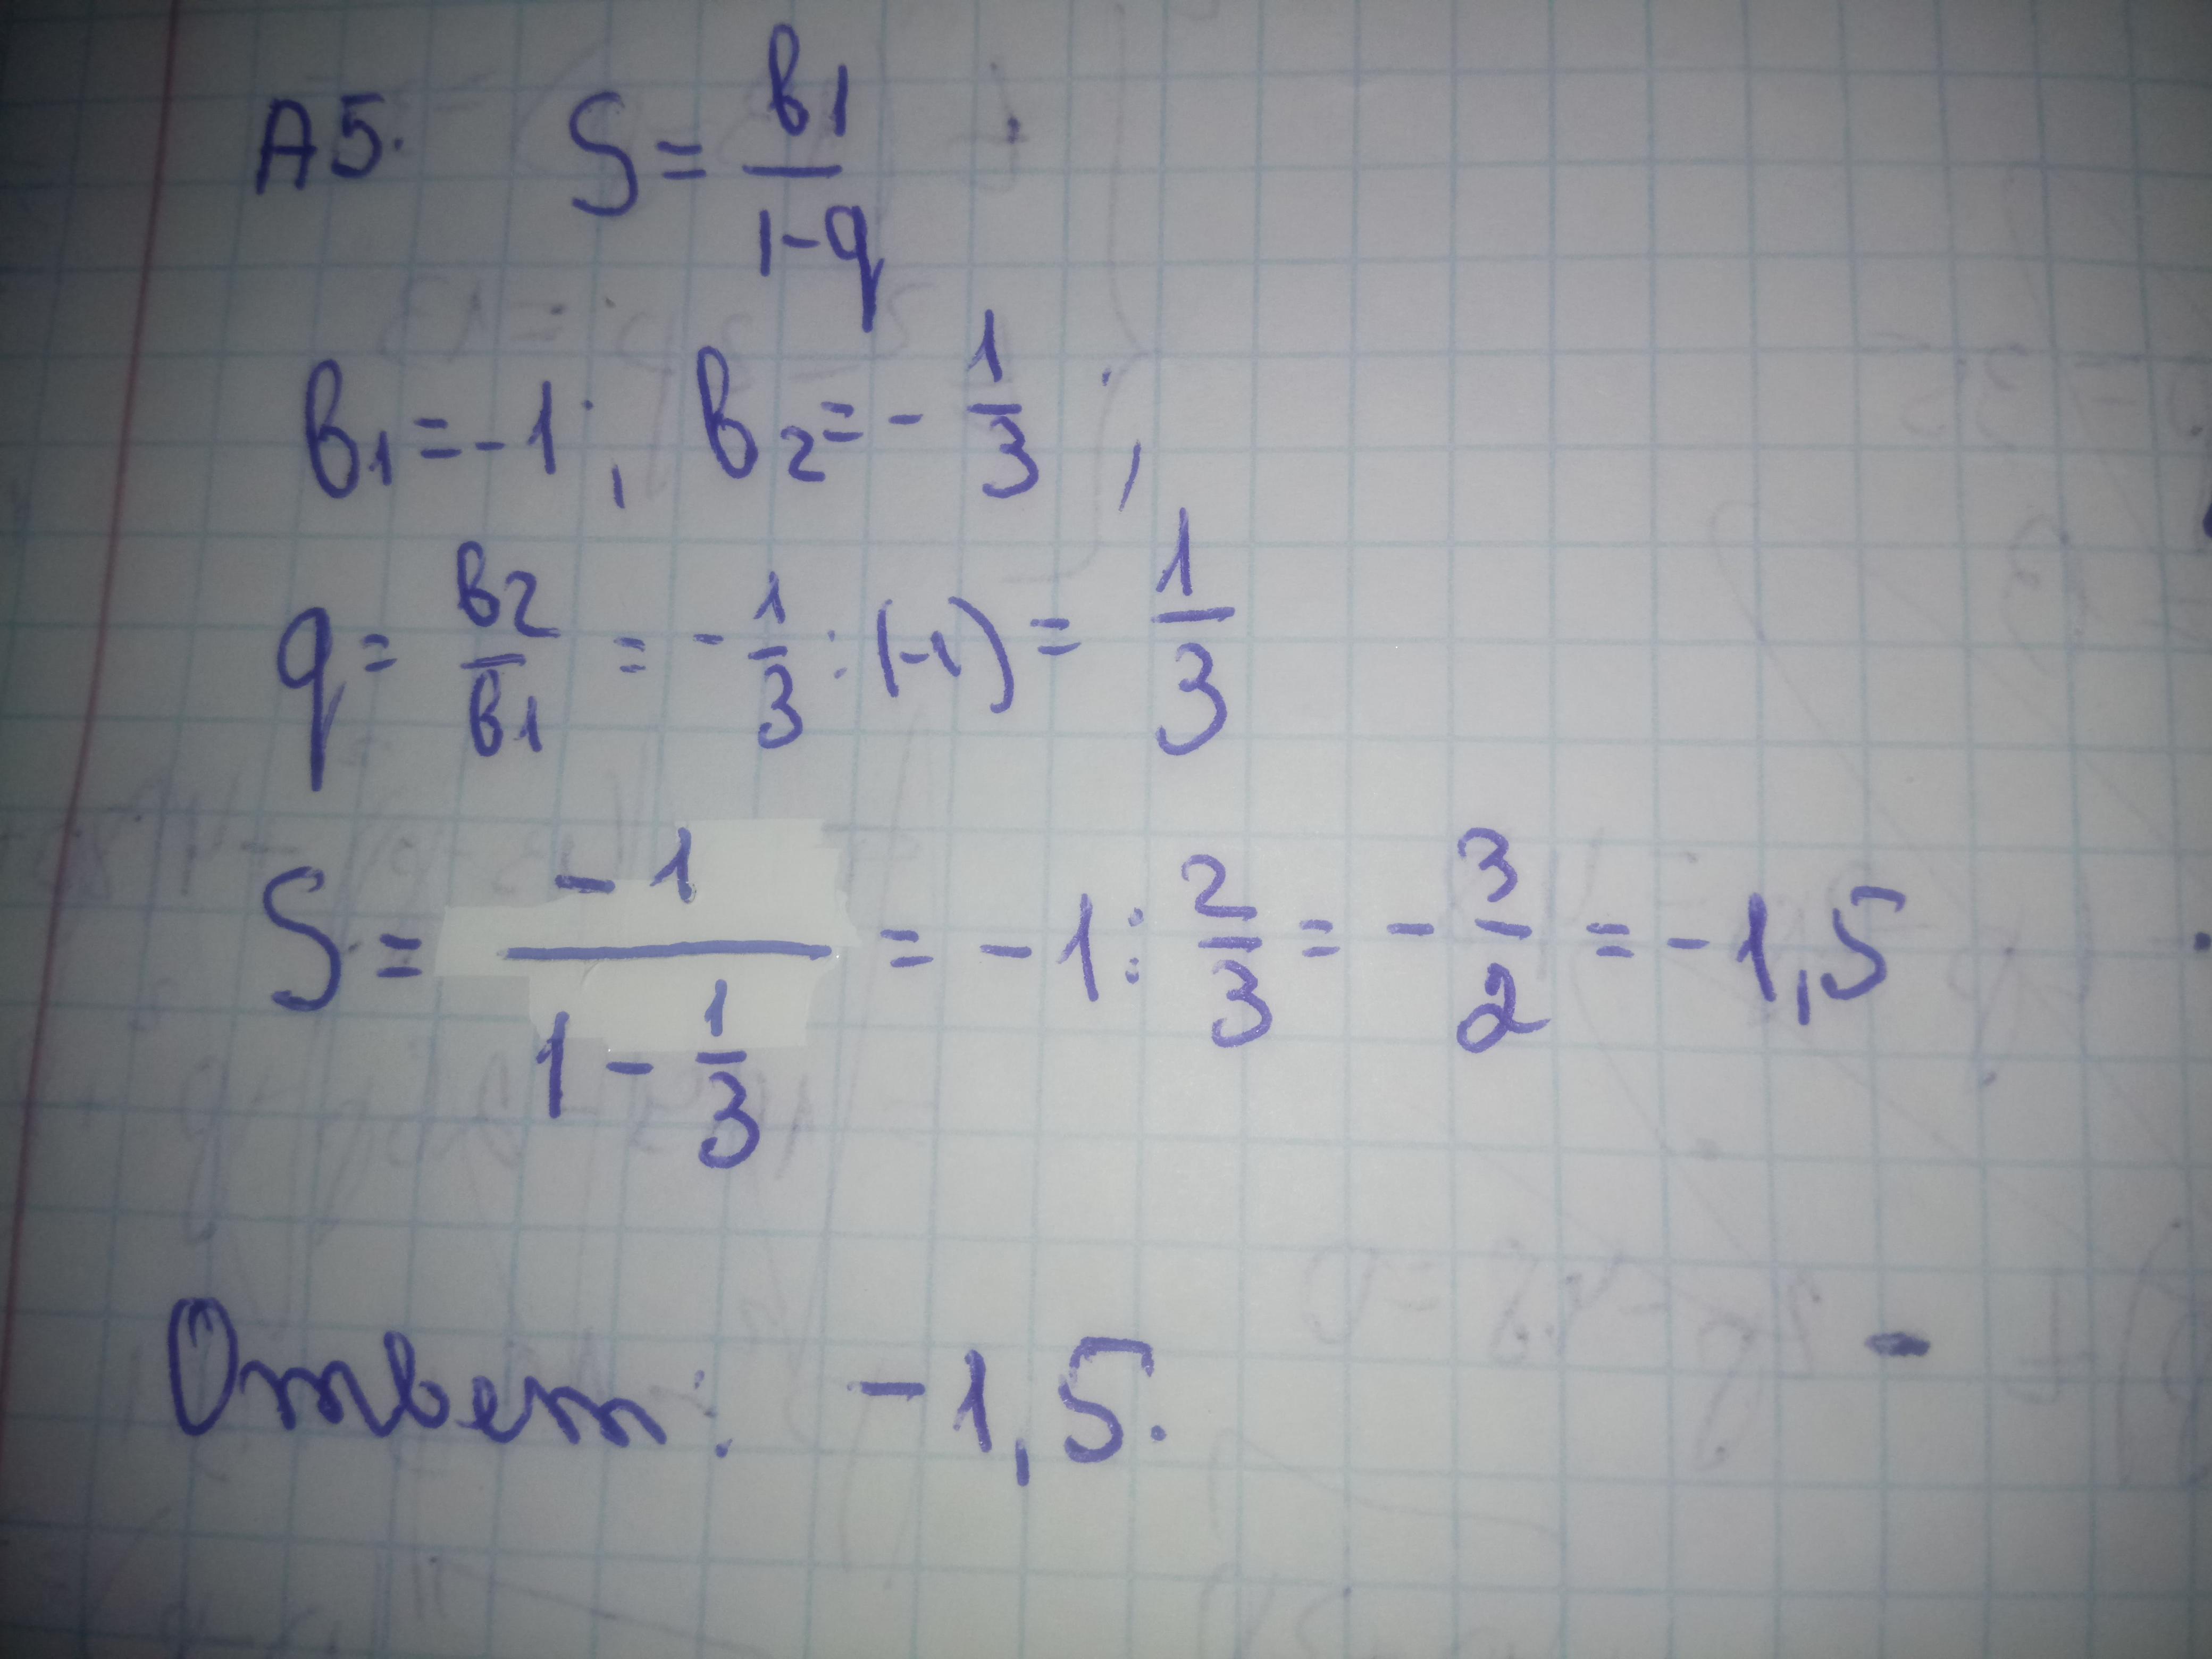 А5. S = в1/(1-q)
в1 = -1; в2 = -1/3;
q = в2/в1 = -1/3 : (-1) = 1/3
S = -1/(1 - 1/3) = -1 : 2/3 = -3/2 = -1,5
Ответ: -1,5.